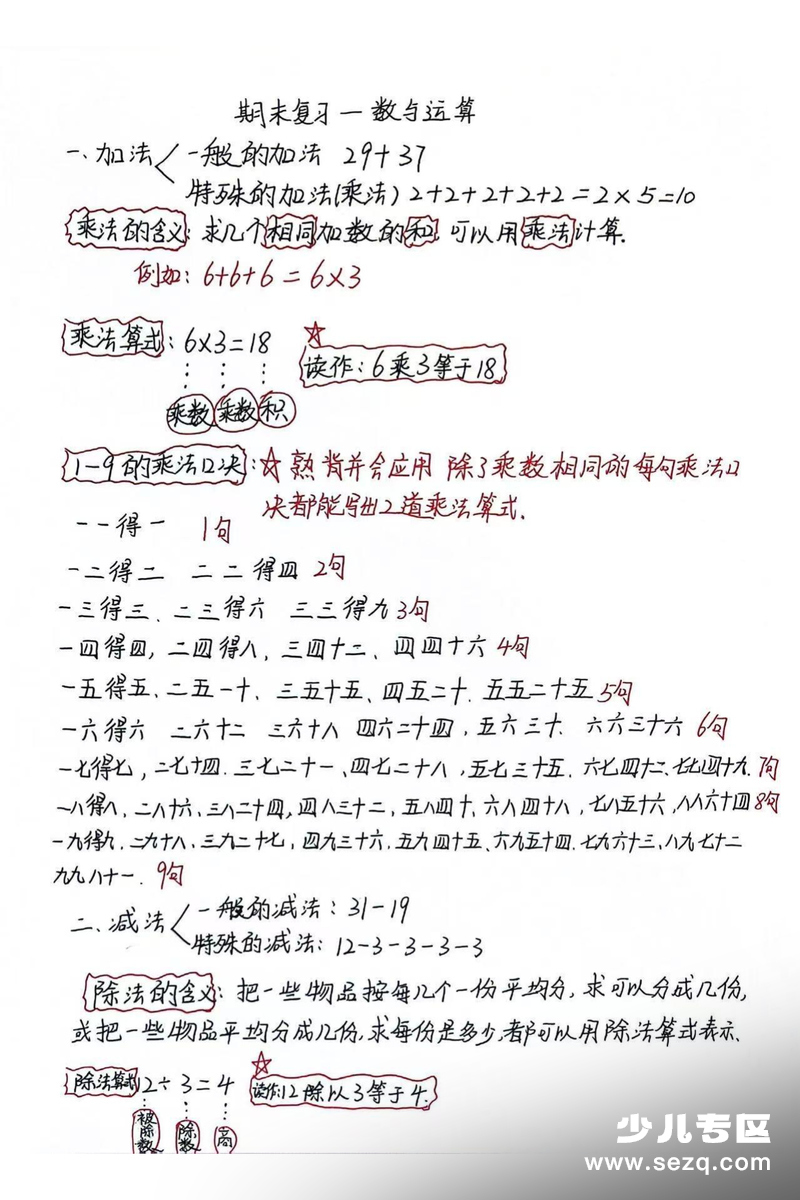 期末复习一数与运算
一、加法 一般的加法 29+37
特殊的加法(乘法) 2+2+2+2+2=2×5=10
乘法的含义:求几个相同加数的和,可以用乘法计算.
例如:6+6+6=6×3
乘法算式:6×3=18 ☆读作:6乘3等于18
乘数 乘数 积
1-9的乘法口决:☆熟背并会应用 除了乘数相同的每句乘法口
决都能写出2道乘法算式.
一一得一 1句
一二得二 二二得四 2句
一三得三、二三得六 三三得九 3句
一四得四,二四得八、三四十二、四四十六 4句
一五得五、二五一十、三五十五、四五二十.五五二十五 5句
一六得六 二六十二 三六十八 四六二十四,五六三十. 六六三十六 6句
一七得七,二七十四.三七二十一、四七二十八,五七三十五.六七四十二、七七四十九.7句
一八得八、二八十六、三八二十四,四八三十二,五八四十、六八四十八,七八五十六,八八六十四 8句
一九得九、二九十八、三九二十七,四九三十六、五九四十五、六九五十四.七九六十三、八九七十二
九九八十一. 9句
二、减法 一般的减法:31-19
特殊的减法:12-3-3-3-3
除法的含义:把一些物品按每几个一份平均分,求可以分成几份,
或把一些物品平均分成几份,求每份是多少,都可以用除法算式表示.
除法算式 12÷3=4 ☆读作:12除以3等于4.
被除数 除数 商
少儿专区
www.sezq.com